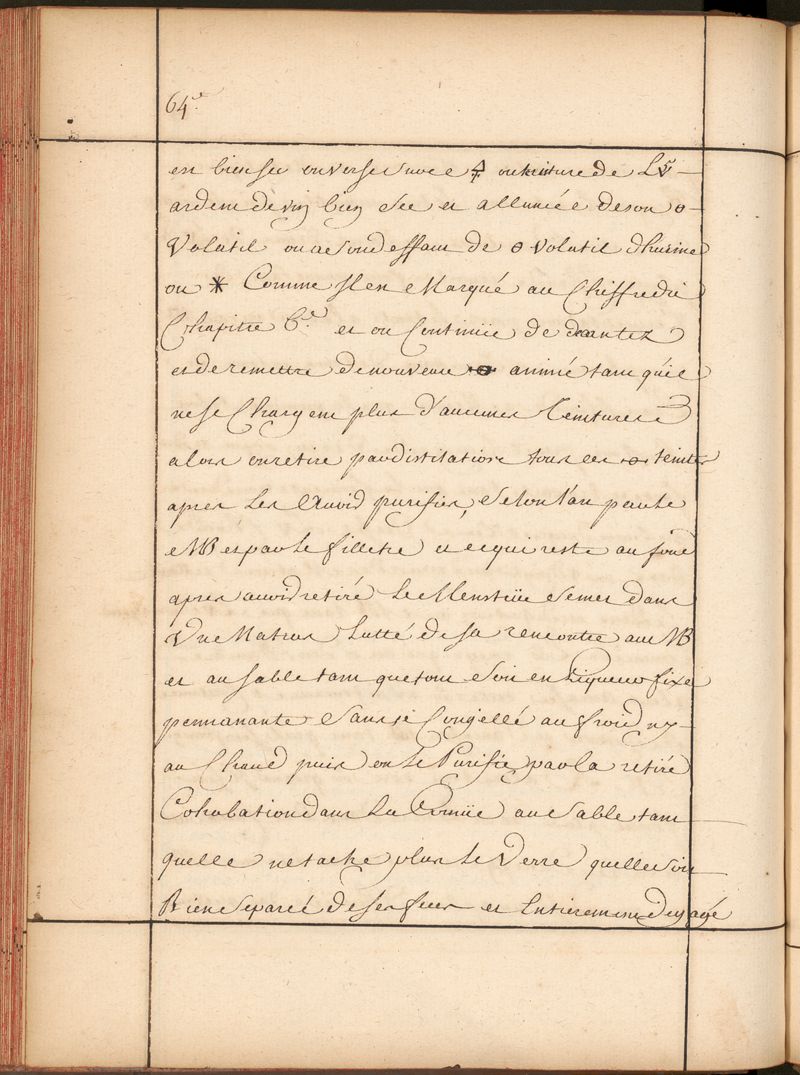 64.e
en bien sec on verse avec 🜍 ou teinture de L'v
ardent de vin bien Sec et allumée de son ⊖
Volatil ou a Son deffaut de ⊖ volatil dhurine
ou * Comme Il en Marqué au Chiffre du
Chapitre 6.e et on Continüe de decantez
et de remettre de nouveau ⊖ animé tant quil
ne se Chargent plus d'aucunes teintures
alors on retire par distilation tous les ⊖ teints
apres Les Avoid purifier, Selon l'art par le
MB et par Le filletre et ce qui reste au fond
apres avoid retiré Le Menstrüe Se met dans
Vne Matras Lutté de Sa rencontre au MB
et au Sable tant que tout Soit en Liqueur fixe
permanante Sans se Congellé au froid ny
au Chaud puis on Le Purifie par la retiré
Cohobation dans La Cornüe au Sable tant
quelle ne tache plus Le Verre quelle Soit
Bien Separée de Ses feces et Entierement degagé